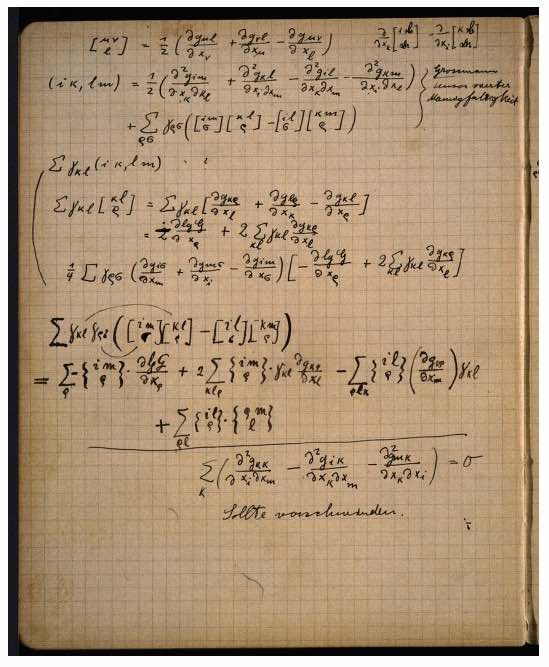 [μν l] = 1/2 (∂gμl/∂xν + ∂gνl/∂xμ − ∂gμν/∂xl)
(iκ, lm) = 1/2 (∂²gim/∂xκ∂xl + ∂²gκl/∂xi∂xm − ∂²gil/∂xκ∂xm − ∂²gκm/∂xi∂xl) } Grossmann
Tensor vierter
Mannigfaltigkeit
+ Σρσ γρσ ([im σ][κl ρ] − [il σ][κm ρ])
Σ γκl (iκ, lm)
Σ γκl [κl ρ] = Σ γκl [∂gκρ/∂xl + ∂glρ/∂xκ − ∂gκl/∂xρ]
∂lgG/∂xρ + 2 Σκl γκl ∂gκρ/∂xl
1/4 Σ γρσ (∂giσ/∂xm + ∂gmσ/∂xi − ∂gim/∂xσ) [−∂lgG/∂xρ + 2 Σκl γκl ∂gκρ/∂xl]
Σ γκl γρσ ([im σ][κl ρ] − [il σ][κm ρ])
= Σρ −{im ρ} · ∂lgG/∂xρ + 2 Σκlρ {im ρ} · γκl ∂gκρ/∂xl − Σρlκ {il ρ} (∂gκρ/∂xm) γκl
+ Σρl {il ρ} · {ρm l}
Σκ (∂²gκκ/∂xi∂xm − ∂²giκ/∂xκ∂xm − ∂²gmκ/∂xκ∂xi) = 0
Sollte verschwinden.